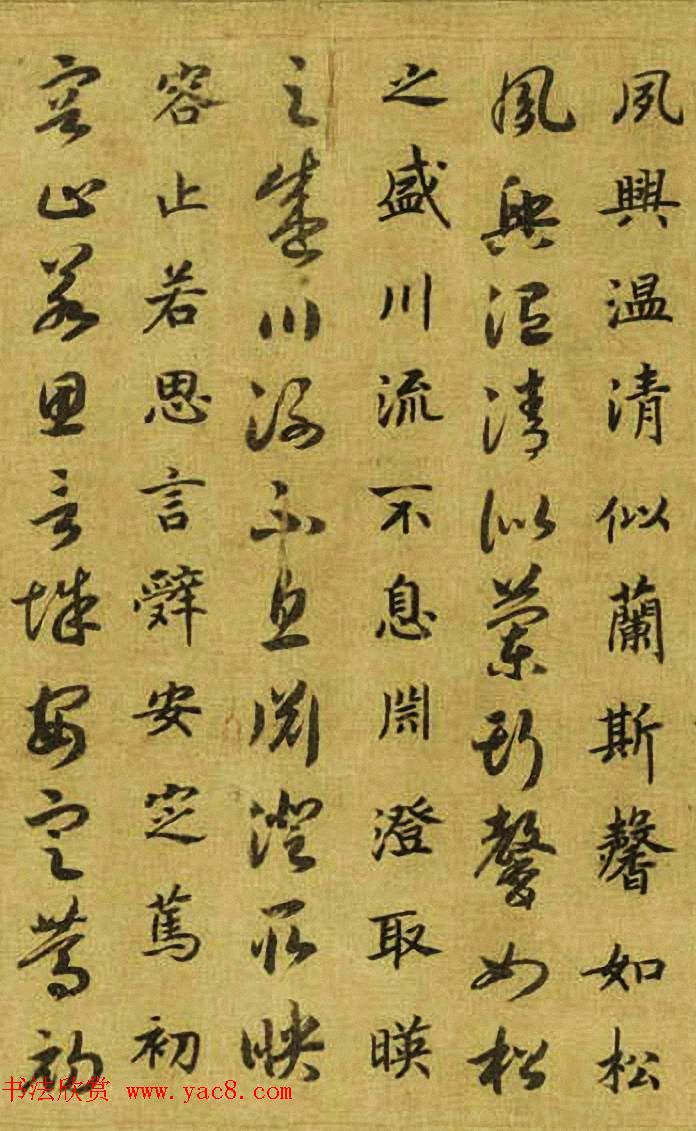 夙興温清似蘭斯馨如松
夙興温清似蘭斯馨如松
之盛川流不息渊澄取暎
之盛川流不息渊澄取暎
容止若思言辝安定篤初
容止若思言辝安定篤初
书法欣赏 www.yac8.com